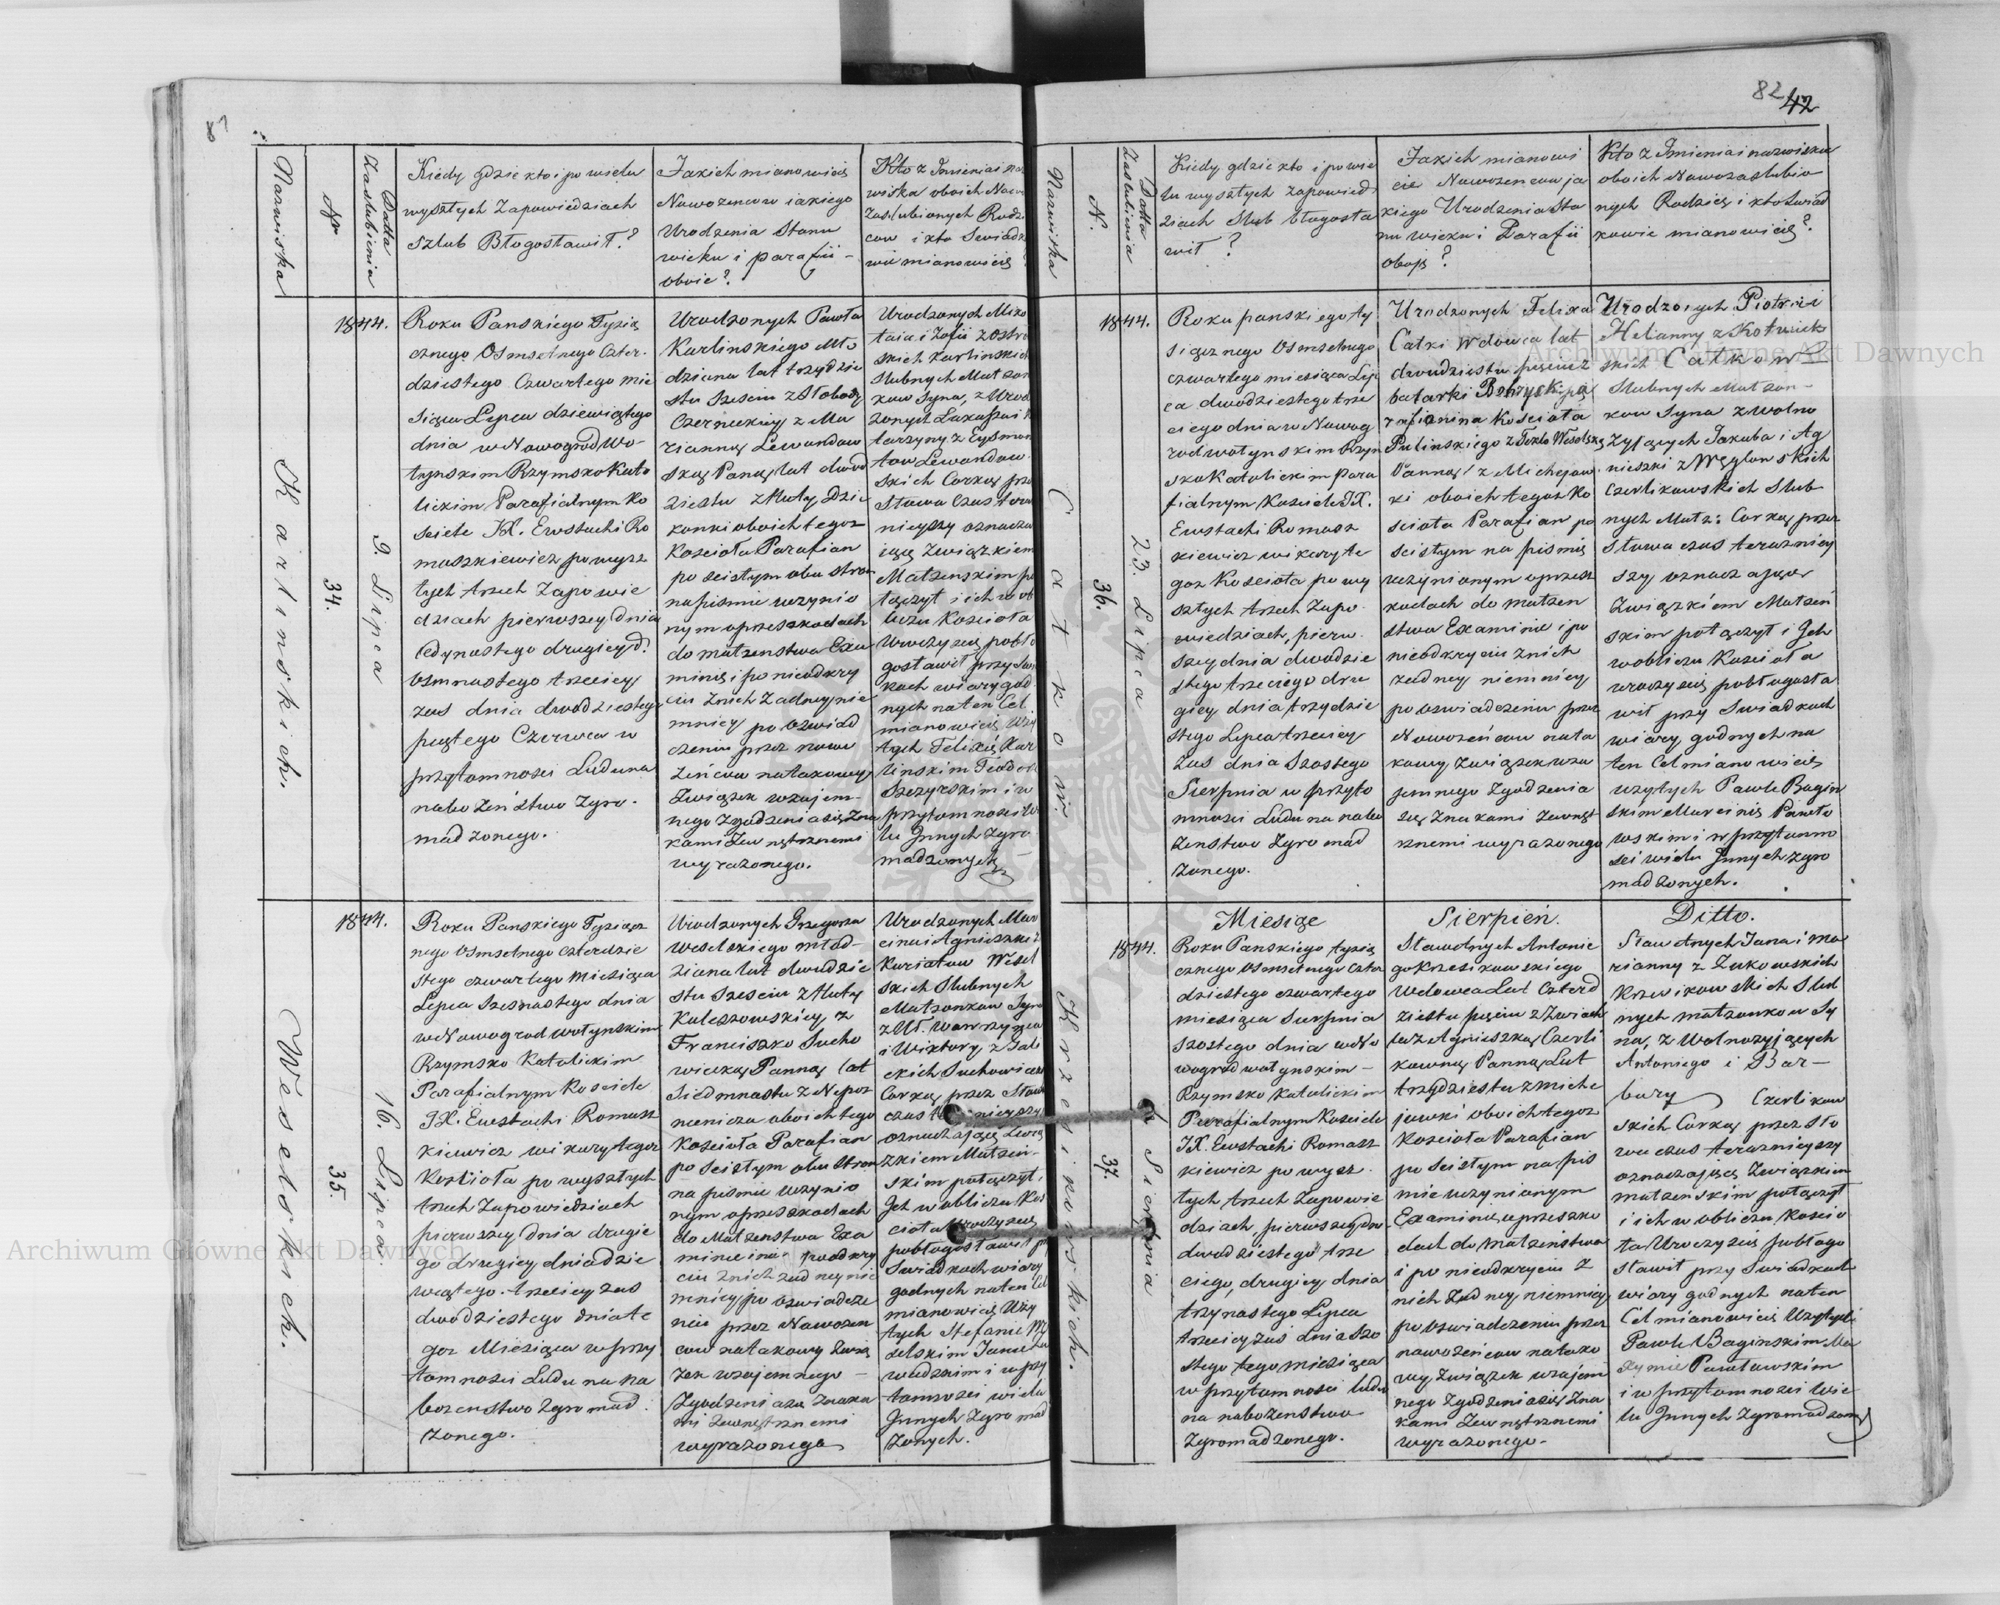 82 42
Nazwiska
Nr
Datta Zaslubienia
Kiedy gdzie kto i po wielu
wyszłych Zapowiedziach
szlub Błogosławił?
Jakich mianowicie
Nowozencow iakiego
Urodzenia Stanu
wieku i parafii -
oboie?
Kto z Imienia i na
zwiska oboich Nowo
Zaslubionych Rodzi
cow i kto Swiadk
wie mianowicie
Karlinskich.
34.
9. Lipca
1844.
Roku Panskiego Tysią
cznego Osmsetnego Czter-
dziestego Czwartego mie
siąca Lepca dziewiątego
dnia w Nowogrod Wo-
łynskim Rzymsko Kato
lickim Parafialnym Ko
sciele JX. Ewstachi Ro
maszkiewicz po wysz
łych trzech Zapowie
dziach pierwszey dnia
Jedynastego drugiey d.
osmnastego trzeciey
zas dnia dwudziestego
piątego Czerwca w
przytomnosci Ludu na
nabożeństwo Zgro-
madzonego.
Urodzonych Pawła
Karlinskiego Mło
dziana lat trzydzie
stu szesciu z Słobody
Czerneckiey z Ma
rianną Lewandow
ską Panną lat dwud
ziestu z Huty Dzie
kanki oboich tegoz
Kosciola Parafian
po scisłym obu stron
na pismie uczynio
nym o przeszkodach
do małzenstwa Exa
minie i po nieodkry
ciu z nich Zadney nie
mniey po oswiad
czeniu przez nowo
żeńcow na takowy
Związek wzajem-
nego Zgodzenia się Zna
kami Zewnętrznemi
wyrazonego.
Urodzonych Miko
łaia i Zofii z Ostro
skich Karlinskich
Slubnych Małzon
kow Syna, z Urod
zonych Łukasza i Ka
tarzyny z Eysmon
tow Lewandow-
skich Corką prze
Słowa Czas teraz
nieyszy oznacza
iące Związkiem
Małzenskim po
łączył i ich w ob
liczu Kosciola
Uroczyscie pobło
gosławił przy Swi
kach wiary god
nych na ten Cel
mianowicie Uży
tych Felixie Kar
linskim Teodor
Szczyrskim i w
przytomnosci Wie
lu Innych Zgro
madzonych
Weselskich.
35.
16. Lipca
1844.
Roku Panskiego Tysiącz
nego Osmsetnego Czterdzie
stego czwartego Miesiąca
Lipca Szesnastego dnia
w Nowogrod wołynskim
Rzymsko Katolickim
Parafialnym Kosciele
JX. Ewstachi Romasz
kiewicz wikary tegoz
Kosciola po wyszłych
trzech Zapowiedziach
pierwszey dnia drugie
go drugiey dnia dzie
wiątego trzeciey zas
dwudziestego dnia te
goz Miesiąca w przy
tomnosci Ludu na na
bozenstwo Zgromad
zonego.
Urodzonych Grzegorza
Weselskiego młod-
ziana lat dwudzie
stu szesciu z Huty
Kuleszowskiey z
Franciszko Sucho
wiecką Panną lat
Siedmnastu z Nepoz
nanicza oboich tego
Kosciola Parafian
po scisłym obu stron
na pismie uczynio
nym o przeszkodach
do Małzenstwa Exa
minie i nie poodkry
ciu z nich zadney nie
mniey po oswiadcze
niu przez Nowozen
cow na takowy Zwią
zek wzajemnego -
Zgodzenia się Znaka
mi Zewnętrznemi
wyrazonego
Urodzonych Mar
cina i Agnieszki z
Kuriatow Wesel
skich Slubnych
Małzonkow Syna
z Uł. Wawrzynca
i Wiktory z Zale
ckich Suchowiec
Corką przez Słow
czas nieyszy
oznaczaiące Zwią
zkiem Małzen-
skim połączył i
Ich w obliczu Kos
ciola Uroczyscie
pobłogosławił p
Swiadkach wiary
godnych na ten Cel
mianowicie Uży
tych Stefanie We
selskim Janie
wudzkim i w przy
tomnosci wielu
Innych Zgromad
zonych.
Nazwiska
N.
Datta Zaslubienia
Kiedy gdzie kto i po wie
lu wyszłych zapowied
ziach Slub błogosła
wił?
Jakich mianowi
cie Nowozencow ja
kiego Urodzenia Sta
nu wieku i Parafii
oboje?
Kto z Imienia i nazwiska
oboich Nowozaslubio
nych Rodzicy i kto Swiad
kowie mianowicie?
Całkow.
36.
23. Lipca
1844.
Roku panskiego ty
siącznego Osmsetnego
czwartego miesiąca Lip
ca dwudziestego trze
ciego dnia w Nowog
rod wołynskim Rzym
sko Katolickim para
fialnym Kosciele JX.
Ewstachi Romasz
kiewicz wikary te
goz Kosciola po wy
szłych trzech Zapo-
wiedziach, pierw-
szey dnia dwudzie
stego trzeciego dru
giey dnia trzydzie
stego Lipca trzeciey
Zas dnia Szostego
Sierpnia w przyto
mnosci Ludu na nabo
zenstwo Zgromad
zonego.
Urodzonych Felixa
Całki Wdowca lat
dwudziestu pięciu z
batarki Bobryckiey pa
rafianina Kosciola
Pulinskiego z Teklo Wesołską
Panną z Michejow-
ki oboich tegoz Ko
sciola Parafian po
scisłym na pismie
uczynionym o przesz
kodach do małzen
stwa Examinie i po
nieodkryciu z nich
zadney niemniey
po oswiadczeniu przez
Nowożeńcow na ta
kowy Związek wza
jemnego Zgodzenia
się Znakami Zewnęt
rznemi wyrazonego
Urodzonych Piotra i
Helianny z Kotwick
skich Całkow
Slubnych Małzon-
kow Syna z Wolno
Zyjących Jakuba i Ag
nieszki z Węglowskich
Czerlikowskich Slub
nych Małz: Corką przez
Słowa czas terazniey
szy oznaczające
Związkiem Małzeń
skim połączył i Ich
w obliczu Kosciola
Uroczyscie pobłogosła
wił przy Swiadkach
wiary godnych na
ten Cel mianowicie
użytych Pawle Bagin
skim Marcinie Pawło
wskim i w przytomno
sci wielu Innych zgro
madzonych.
Krzesikowskich.
37.
Sierpnia
1844.
Miesiąc
Roku Panskiego tysią
cznego Osmsetnego Czter
dziestego czwartego
miesiąca Sierpnia
szostego dnia w No
wogrod wołynskim -
Rzymsko Katolickim
Parafialnym Kosciele
JX. Ewstachi Romasz
kiewicz po wysz-
łych trzech Zapowie
dziach, pierwszey dn
dwudziestego trze
ciego, drugiey dnia
trzynastego Lipca
trzeciey zas dnia Szo
stego tego miesiąca
w przytomnosci ludu
na nabozenstwo
Zgromadzonego.
Sierpień.
Sławetnych Antonie
go Krzesikowskiego
Wdowca Lat Czterd
ziestu pięciu z Zwiach
la z Agnieszką Czerli
kowną Panną Lat
trzydziestu z Miche
jowki oboich tegoz
Kosciola Parafian
po scisłym na pis
mie uczynionym
Examinie, o przeszko
dach do Małzenstwa
i po nieodkryciu z
nich Zadney niemniey
po oswiadczeniu przez
nowożeńcow na tako
wy Związek wzajem
nego Zgodzenia się Zna
kami Zewnętrznemi
wyrazonego.
Ditto.
Sławetnych Jana i Ma
rianny z Zukowskich
Krzesikowskich Slub
nych małzonkow Sy
na, z Wolnozyjących
Antoniego i Bar-
bary Czerlikow
skich Corką przez Sło
wa czas terazniejszy
oznaczającą Związkiem
małzenskim połączył
i ich w obliczu Koscio
ła Uroczyscie pobłogo
sławił przy Swiadkach
wiary godnych na ten
Cel mianowicie Użytych
Pawle Baginskim Ma
Pawłowskim
i w przytomnosci Wie
lu Innych Zgromadzonych
Archiwum Główne Akt Dawnych
Archiwum Główne Akt Dawnych